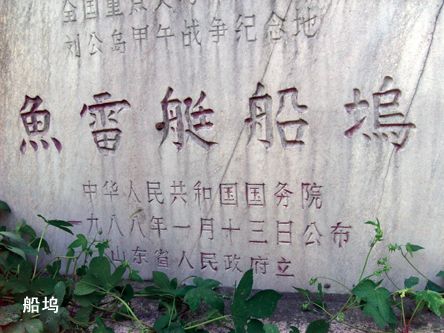 全国重点文
刘公岛甲午战争纪念地
魚雷艇船塢
中华人民共和国国务院
一九八八年一月十三日公布
山东省人民政府立
船坞